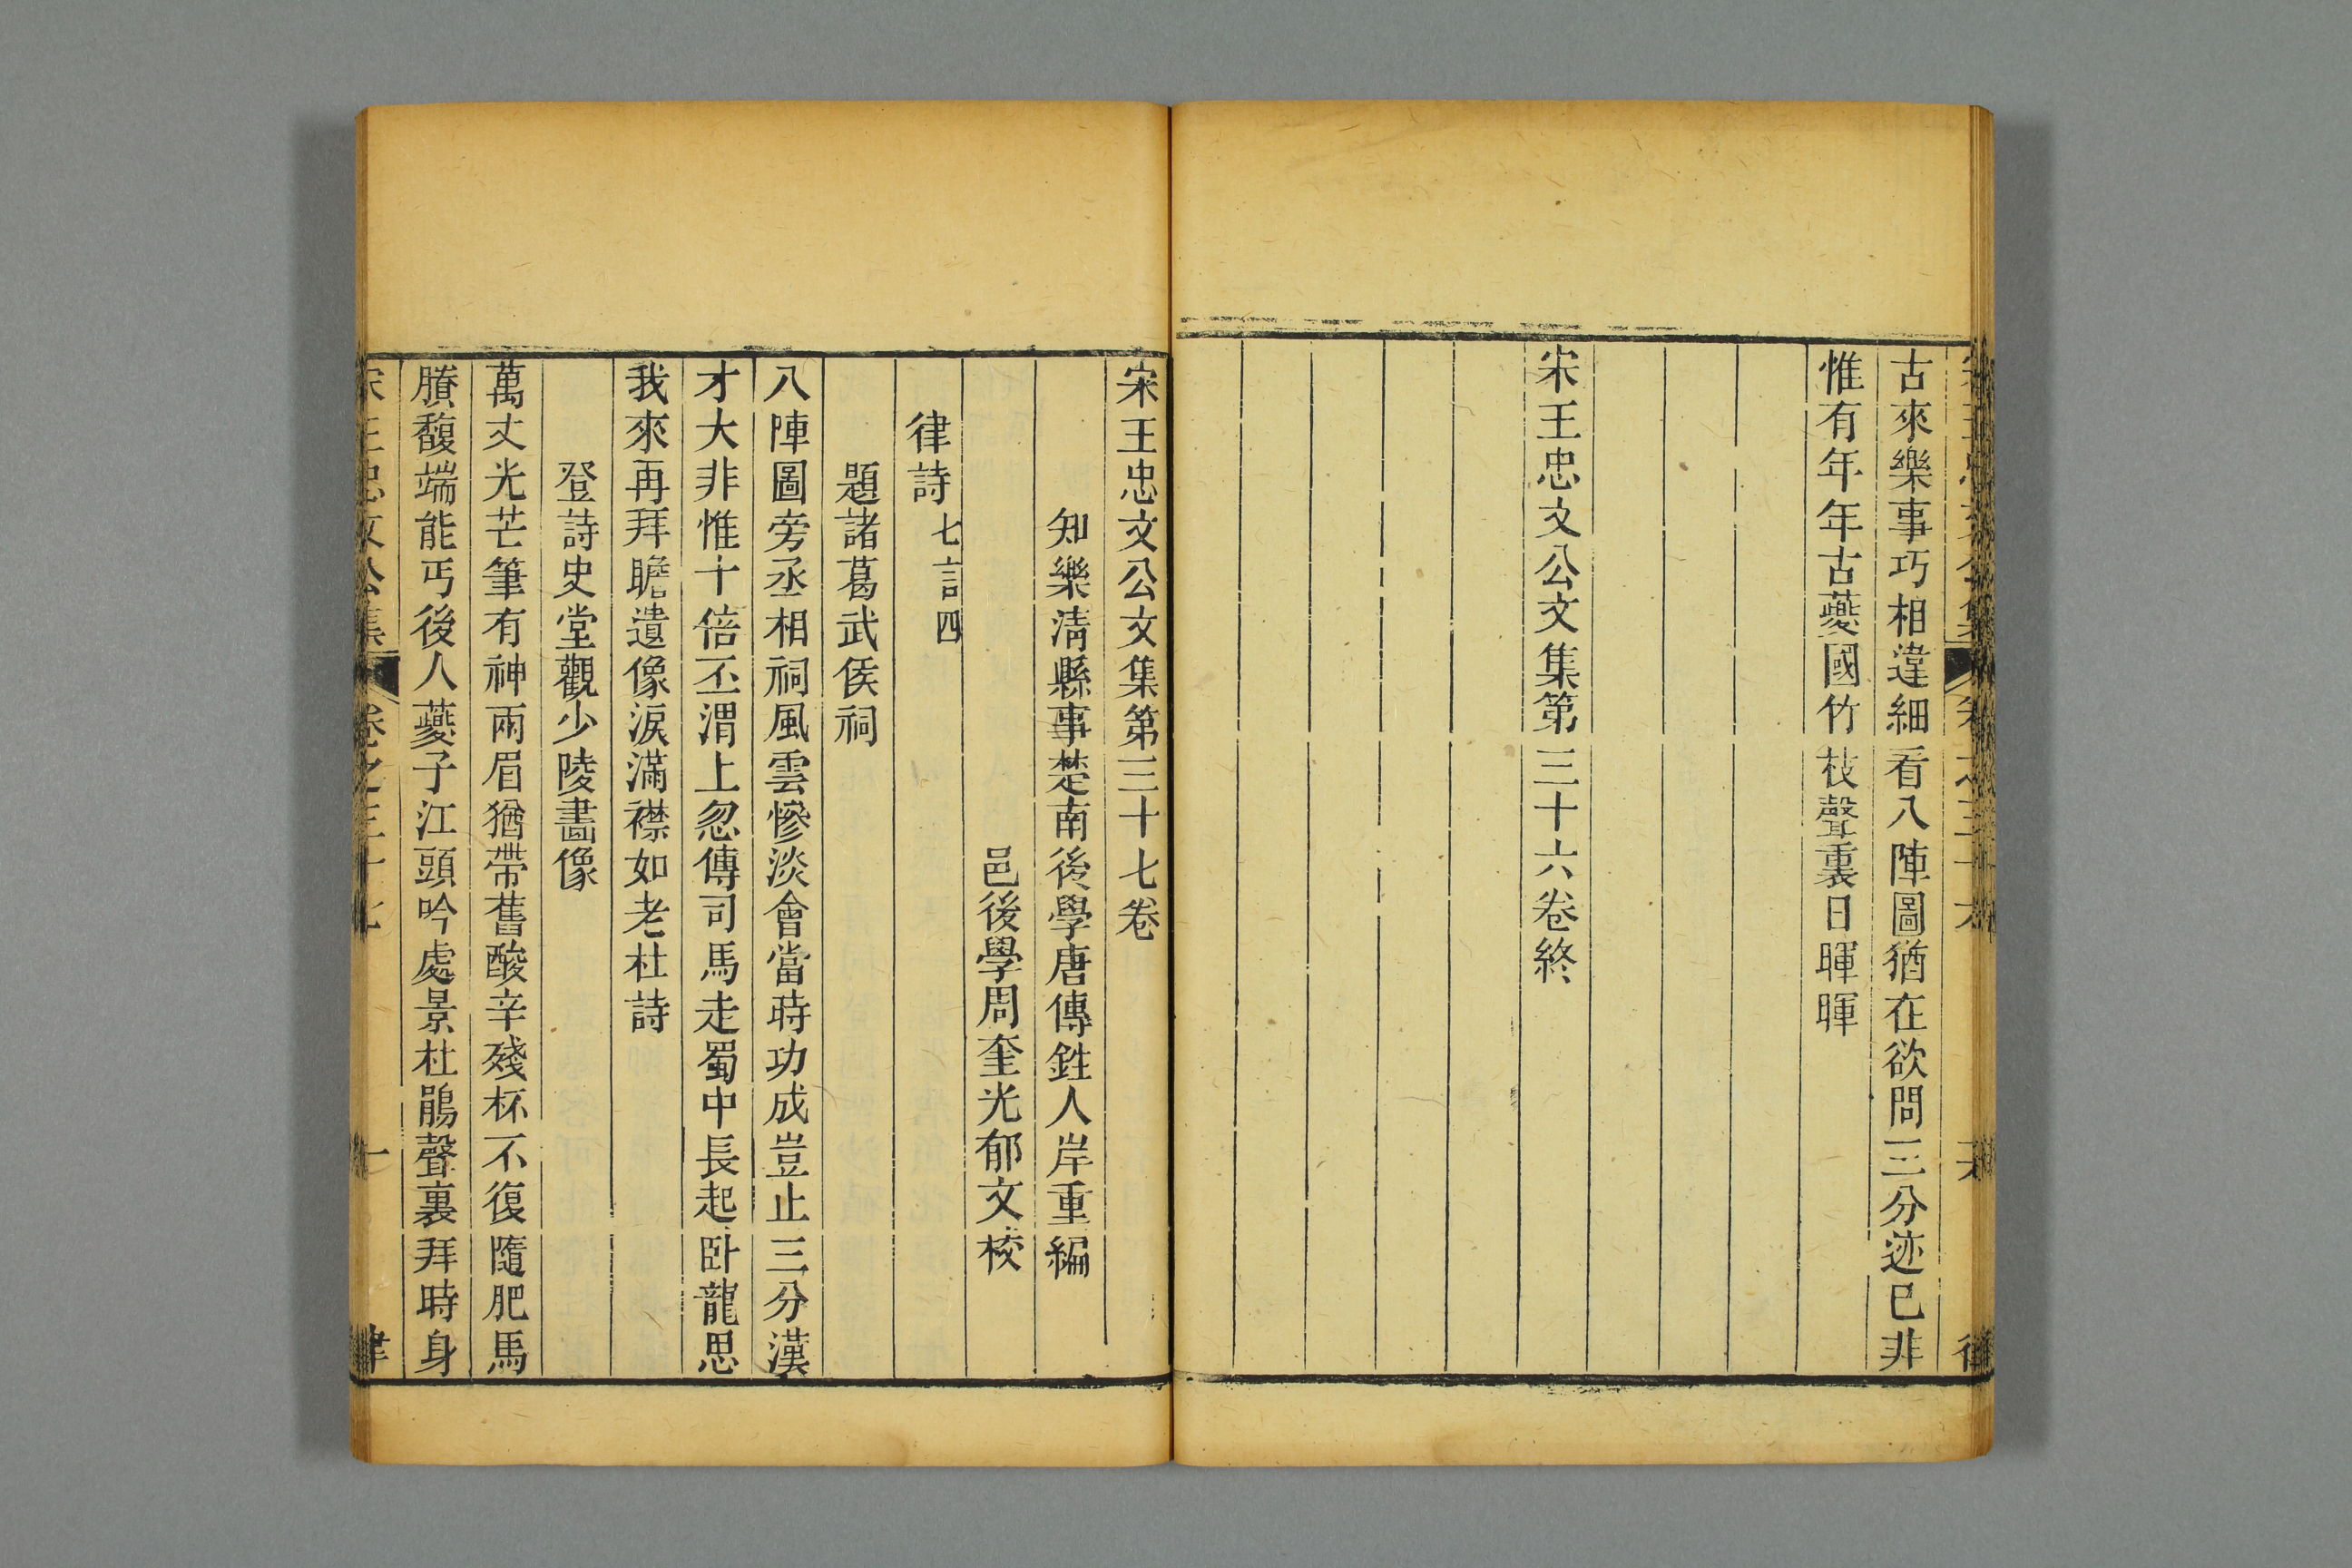 古來樂事巧相違細看八陣圖猶在欲問三分迹已非
惟有年年古夔國竹枝聲裏日暉暉
宋王忠文公文集第三十六卷終
宋王忠文公文集第三十七卷
知樂清縣事楚南後學唐傳鉎人岸重編
邑後學周奎光郁文校
律詩七言四
題諸葛武侯祠
八陣圖旁丞相祠風雲慘淡會當時功成豈止三分漢
才大非惟十倍丕渭上忽傳司馬走蜀中長起卧龍思
我來再拜瞻遺像淚滿襟如老杜詩
登詩史堂觀少陵畵像
萬丈光芒筆有神兩眉猶帶舊酸辛殘杯不復隨肥馬
賸馥端能丐後人夔子江頭吟處景杜鵑聲裏拜時身
宋王忠文公集 卷之三十七 一 律